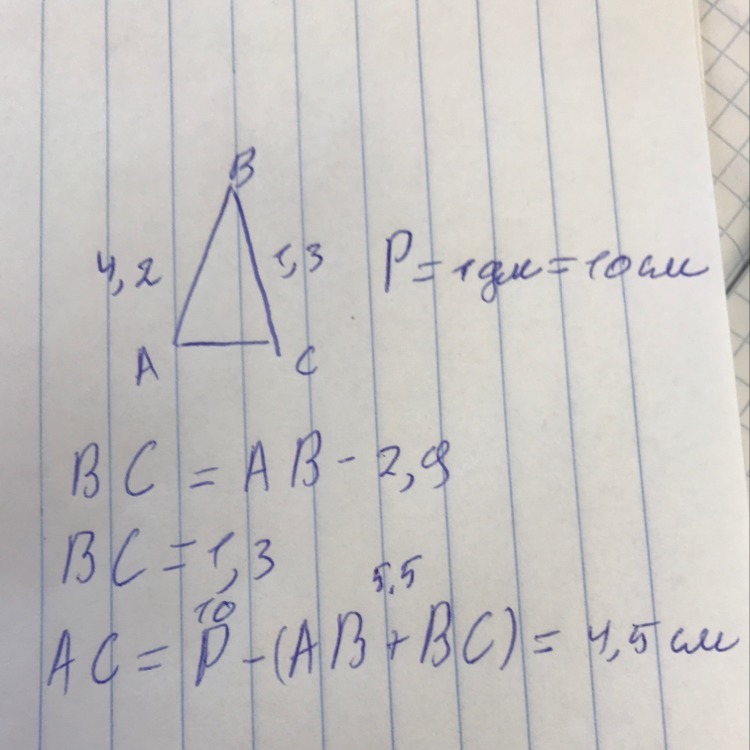 B
4,2 1,3 P = 1дм = 10 см
A C
BC = AB - 2,9
BC = 1,3
10 5,5
AC = P - (AB + BC) = 4,5 см